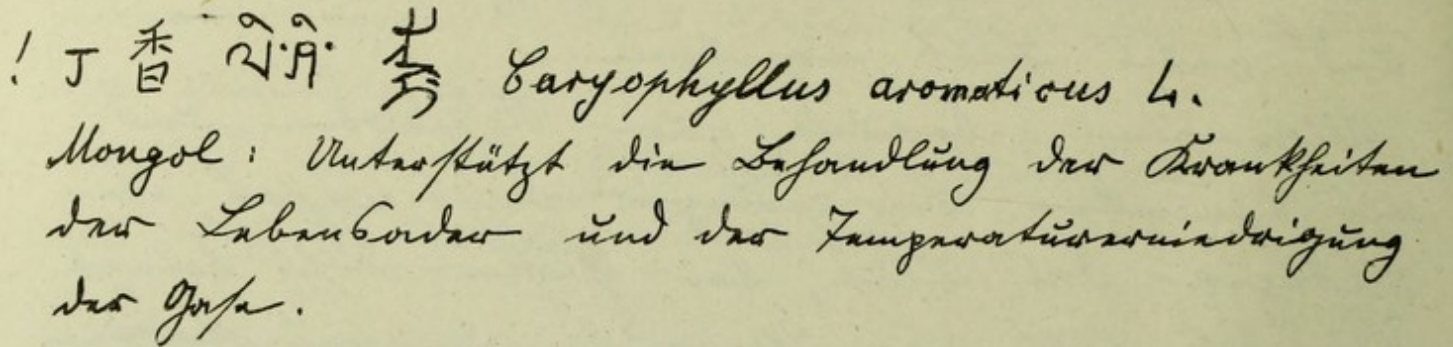 ! 丁香 ལི་ཤི་ Caryophyllus aromaticus L.
Mongol: Unterstützt die Behandlung der Krankheiten
der Lebensader und der Temperaturerniedrigung
der Gase.